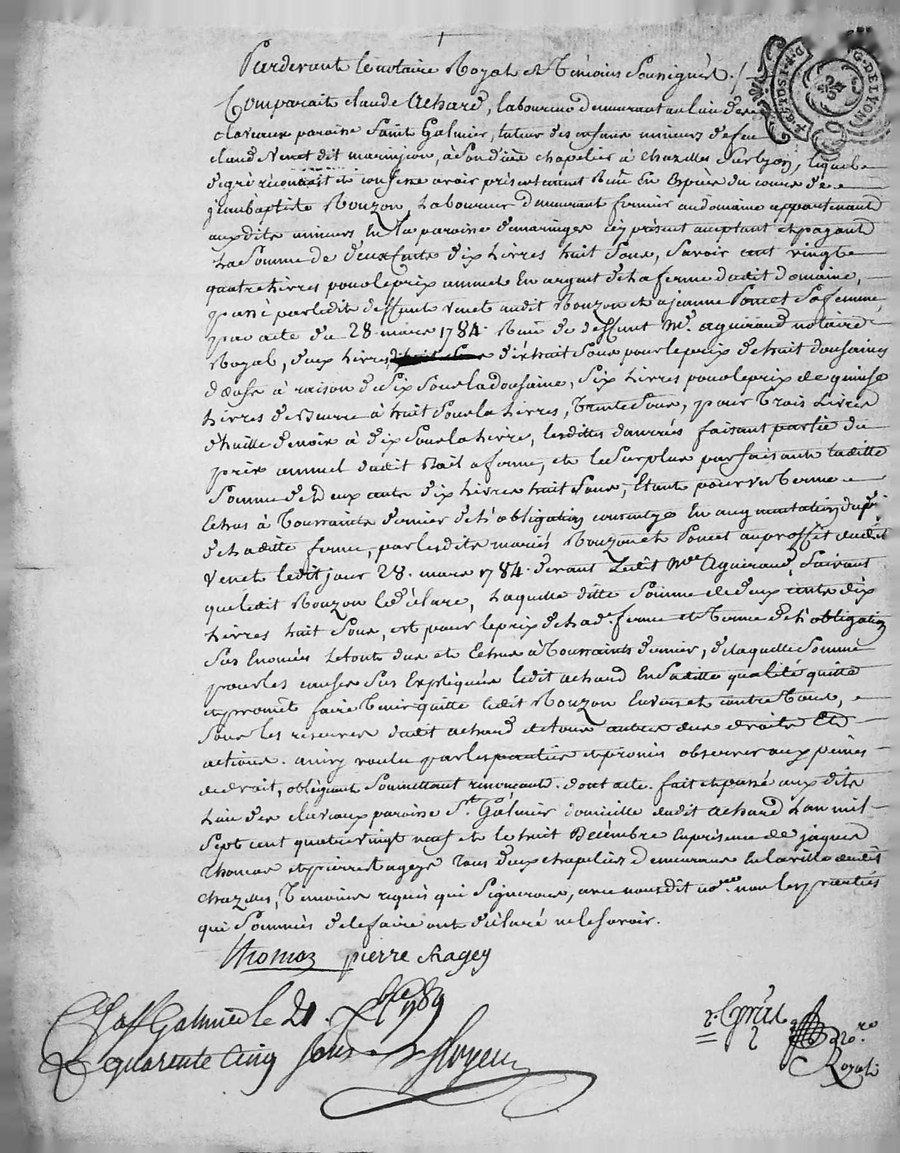 Pardevant le notaire Royal et Témoins Soussignés. /
G. DE LYON
Comparait claude Achard, laboureur demeurant au lieu des
claveaux paroisse Saint Galmier, tuteur des enfans mineurs de feu
claude Venet dit marinjon, à Son décè chapelier à chazelles Sur lyon, lequel
de gré reconnait et confesse avoir présentement Reçu En Espèces du cours de
jean baptiste Rouzon Laboureur demeurant fermier au domaine appartenant
auxdits mineurs En la paroisse de maringes icy présent acceptant et payant
La Somme de deux cents dix Livres huit Sous, Savoir cent vingt
quatre Livres pour le prix annuel En argent de La ferme dudit domaine,
passé par ledit deffunt Venet audit Rouzon et a jeanne Poncet Sa femme
par acte du 28 mars 1784. Reçu de deffunt Me. aguiraud notaire
Royal, deux Livres dix huit Sous pour le prix de huit dousaines
d'œufs à raison de Six Sous la dousaine, Six Livres pour le prix de quinse
Livres de Beurre à huit Sous la Livre, Trente Sous, pour Trois Livres
d'huille de noix à dix Sous la Livre, lesdittes danrées faisant partie du
prix annuel dudit Bail a ferme, et le Surplus parfaisant laditte
Somme de deux cents dix Livres huit Sous, Etant pour un Terme
Echus à Toussaints dernier de L'obligation consentye En augmentation du pri
de laditte ferme, par lesdits mariés Rouzon et Poncet au proffit dudit
Venet ledit jour 28. mars 1784. devant Ledit Me Aguiraud, Suivant
que ledit Rouzon Le déclare, Laquelle ditte Somme de deux cents dix
Livres huit Sous, est pour le prix de lad. ferme et Terme de L'obligation
Sus Enoncés Le tout dus et Echus à Toussaints dernier, de laquelle Somme
pour les causes Sus Expliquées ledit achard En Saditte qualité quitte
et promet faire Tenir quitte ledit Rouzon Envers et contre Tous,
Sous les réserves dudit achard de tous autres dus droits Et
actions. ainsy voulu par les parties et promis observer aux peines
de droit, obligeant Soumettant renonçant. dont acte. fait et passé aux dits
Lieu des claveaux paroisse St. Galmier domicille dudit achard L'an mil
Sept cent quatre vingt neuf et le huit Décembre En présence de jaques
Thomas et pierre Chagey Tous deux chapeliers demeurans En la ville dudit
chazelles, Témoins requis qui Signeront, avec nousdit nore. non les parties
qui Sommées de le faire ont déclaré ne le Savoir.
Thomas pierre chagey
St Galmier le 21. Xbre 1789
quarente Cinq Sous
nore. Royal